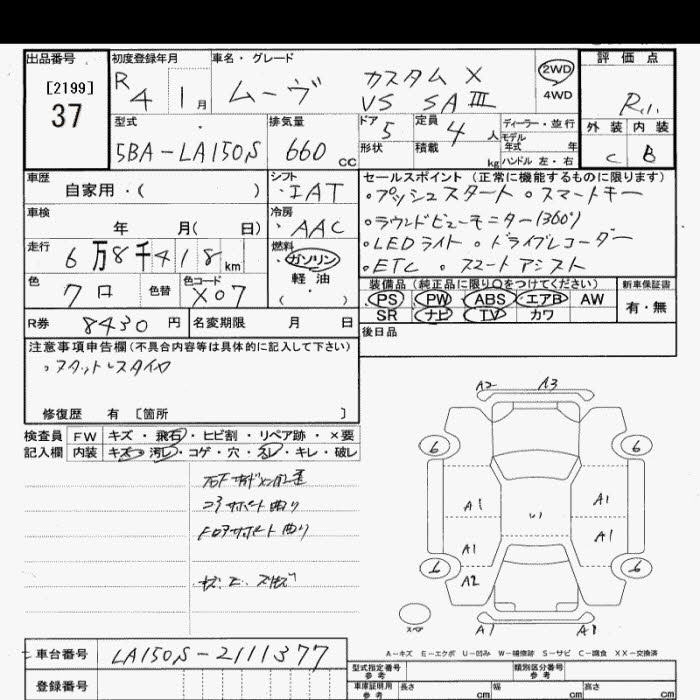 出品番号
[2199]
37
初度登録年月
R4 1月
車名・グレード
ムーヴ カスタム X
VS SAⅢ
2WD
4WD
評価点
R.1.
外装 内装
C B
型式
5BA-LA150S
排気量
660 cc
ドア 5
形状
定員 4人
積載 kg
ディーラー・並行
モデル年式 年
ハンドル 左・右
車歴
自家用・( )
シフト
IAT
車検
年 月( 日)
冷房
AAC
走行
6万8千418km
燃料
ガソリン
・
軽油
色
クロ
色替
色コード
X07
R券 8430円
名変期限 月 日
セールスポイント(正常に機能するものに限ります)
・プッシュスタート ・スマートキー
・ラウンドビューモニター(360°)
・LEDライト ・ドライブレコーダー
・ETC ・スマートアシスト
装備品(純正品に限り○をつけてください)
PS PW ABS エアB AW
SR ナビ TV カワ
新車保証書
有・無
後日品
注意事項申告欄(不具合内容等は具体的に記入して下さい)
・スタットレスタイヤ
修復歴 有 〔箇所 〕
検査員記入欄
FW キズ・飛石・ヒビ割・リペア跡・×要
内装 キズ・汚レ・コゲ・穴・スレ・キレ・破レ
コアサポート曲り
A2 A3
6 6
A1 A1
A1 A1
A2
6 6
スペア
A1
A-キズ E-エクボ U-凹み W-補修跡 S-サビ C-腐食 XX-交換済
車台番号 LA150S-2111377
登録番号
型式指定番号 参考
類別区分番号 参考
車庫証明用 参考
長さ cm 幅 cm 高さ cm